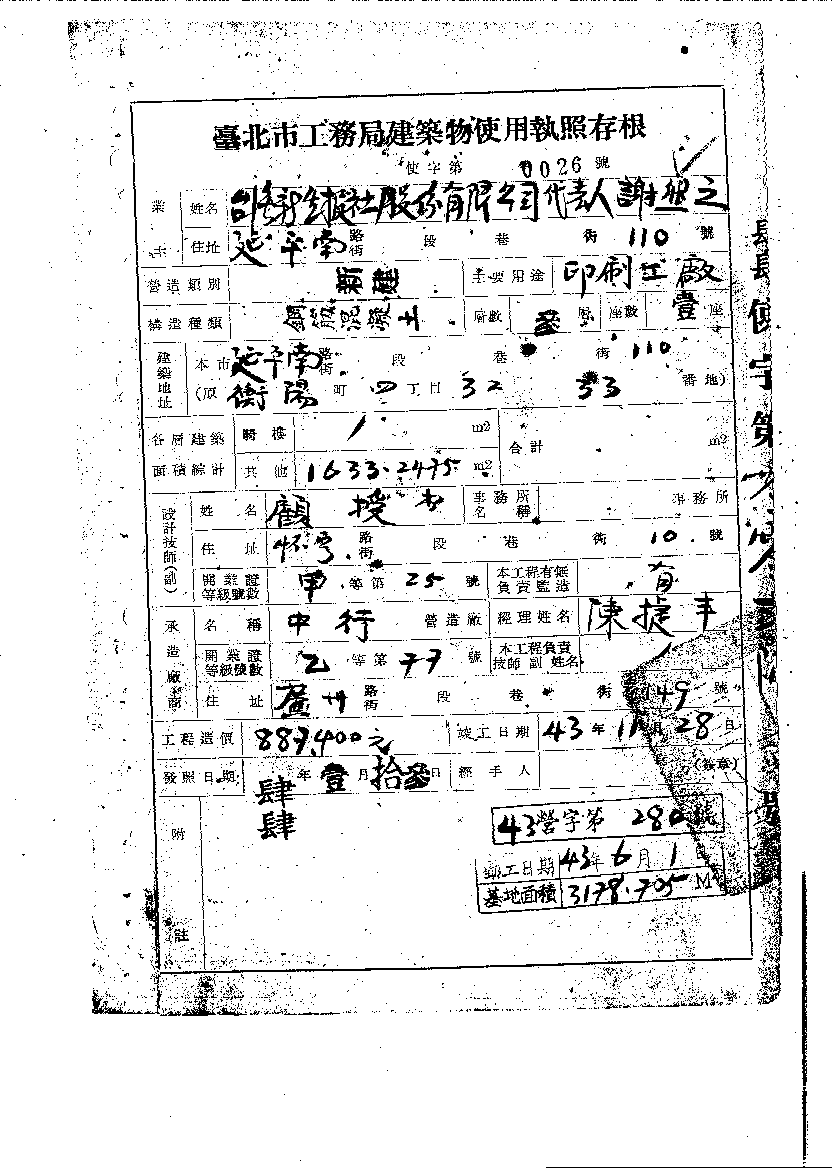 臺北市工務局建築物使用執照存根
使字第 0026 號
業主 姓名 台灣新生報社股份有限公司代表人謝然之
住址 延平南 路街 段 巷 街 110 號
營造類別 新建 主要用途 印刷工廠
構造種類 鋼筋混凝土 層數 參 層 座數 壹 座
建築地址 本市 延平南 路街 段 巷 街 110
(原 衡陽 町 四 丁目 32 33 番地)
各層建築面積綜計 騎樓 / m2 合計 m2
其他 1633.2475 m2
設計技師(副) 姓名 顧授書 事務所名稱 事務所
住址 怀宁 路街 段 巷 街 10 號
開業證等級號數 甲 等第 25 號 本工程有無負責監造 有
承造廠商 名稱 中行 營造廠 經理姓名 陳捷丰
開業證等級號數 乙 等第 77 號 本工程負責技師副姓名 /
住址 廣州 路街 段 巷 街 49 號
工程造價 887,400元 竣工日期 43 年 11 月 28 日
發照日期 肆肆 年 壹 月 拾參 日 經手人 (簽章)
附註
43營字第 280 號
動工日期 43年6月1日
基地面積 3178.705 M
使字第 號